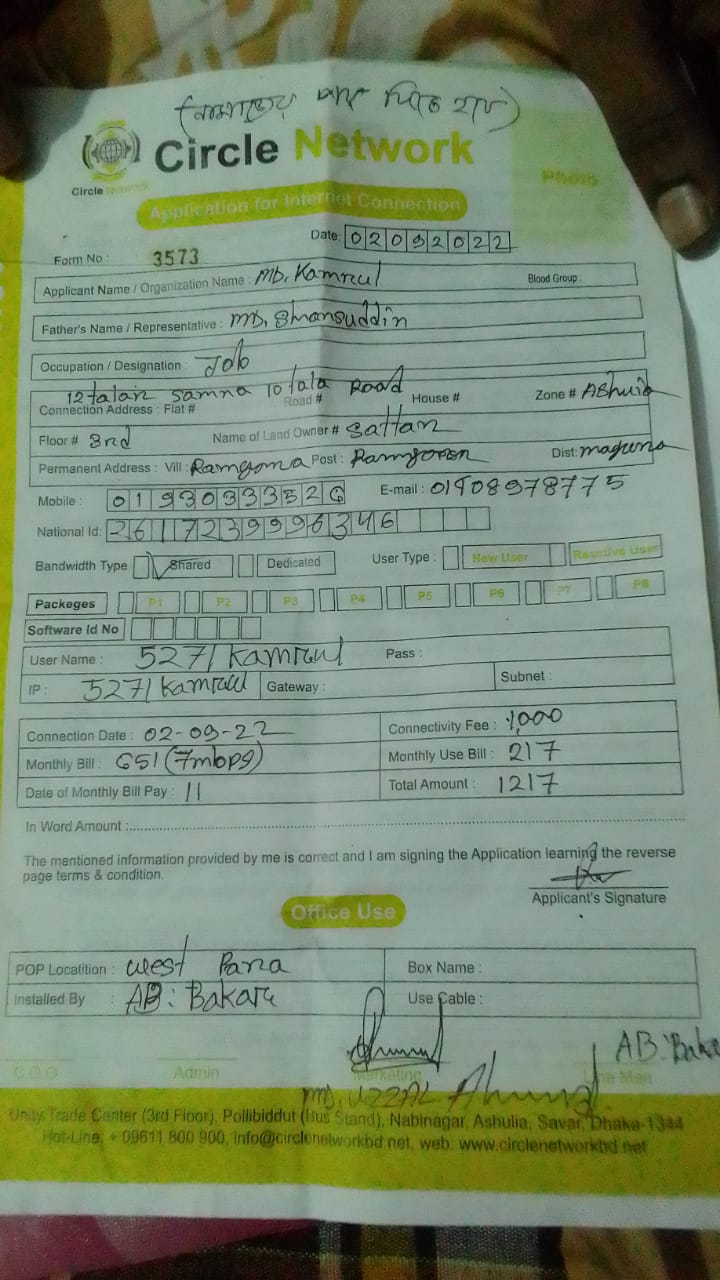 Circle Network
Circle Network
Photo
Application for Internet Connection
Date: 02092022
Form No : 3573
Applicant Name / Organization Name : MD. Kamrul Blood Group :
Father's Name / Representative : MD. Shamsuddin
Occupation / Designation : Job
12 talar samna 10 tala Road
Connection Address : Flat # Road # House # Zone #
Floor # 3rd Name of Land Owner # Sattar
Permanent Address : Vill : Post : Dist:
Mobile : E-mail : 01908978775
National Id:
Bandwidth Type Shared Dedicated User Type : New User Reactive User
Packeges P1 P2 P3 P4 P5 P6 P7 P8
Software Id No
User Name : 5271 Kamrul Pass :
IP : 5271 Kamrul Gateway : Subnet :
Connection Date : 02-09-22 Connectivity Fee : 1,000
Monthly Bill : 651 (7mbps) Monthly Use Bill : 217
Date of Monthly Bill Pay : 11 Total Amount : 1217
In Word Amount :
The mentioned information provided by me is correct and I am signing the Application learning the reverse
page terms & condition.
Applicant's Signature
Office Use
POP Locatition : West Para Box Name :
Installed By : AB: Bakar Use Cable :
AB: Baka
C.O.O Admin Marketing Line Man
MD. UZZAL Ahmed
Unity Trade Center (3rd Floor), Pollibiddut (Bus Stand), Nabinagar, Ashulia, Savar, Dhaka-1344
Hot-Line: + 09611 800 900, info@circlenetworkbd.net, web: www.circlenetworkbd.net